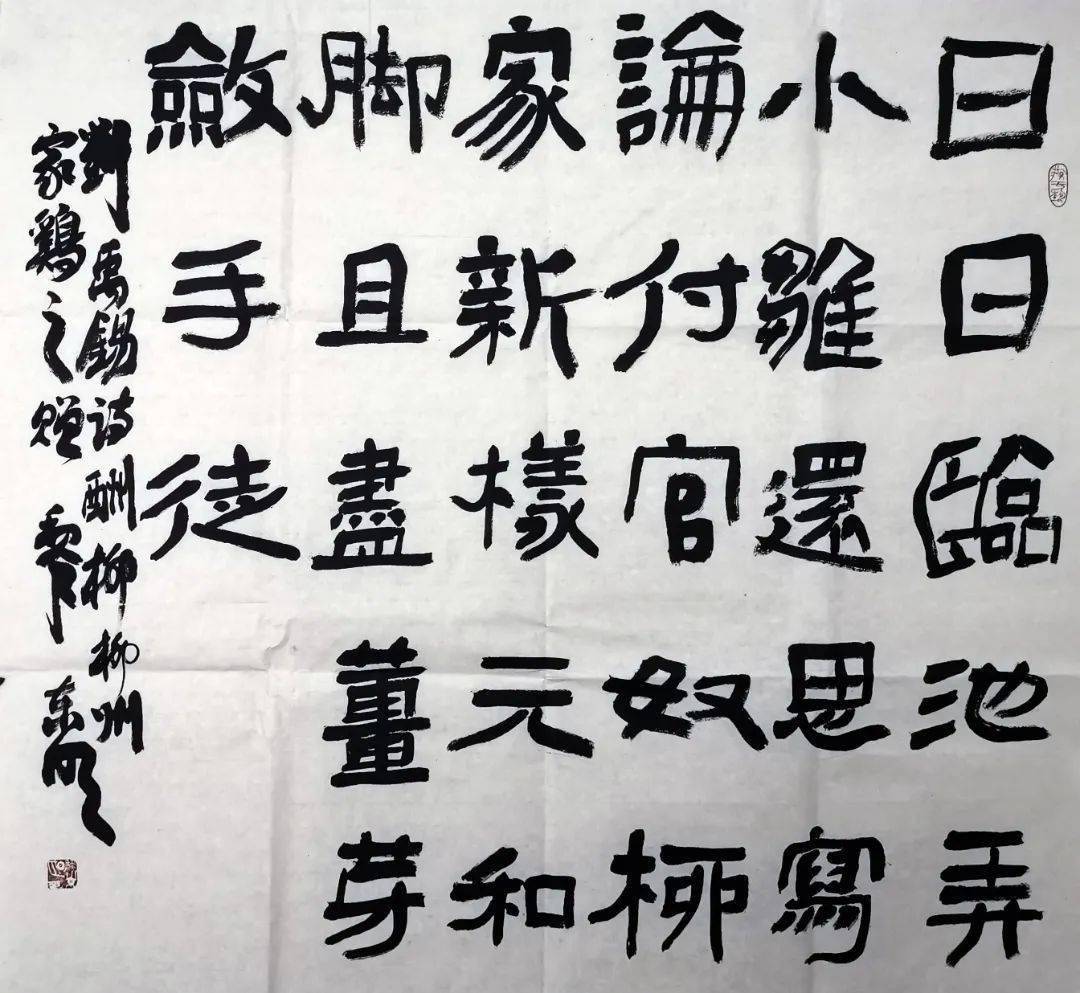 日日臨池弄
小雛還思寫
論付官奴柳
家新樣元和
脚且盡薑芽
斂手徒
劉禹錫詩酬柳柳州
家鷄之贈